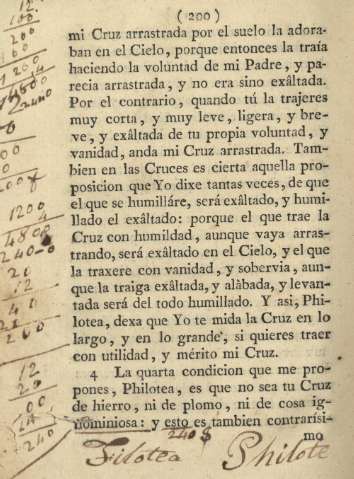 ( 200 )
mi Cruz arrastrada por el suelo la adora-
ban en el Cielo, porque entonces la traía
haciendo la voluntad de mi Padre, y pa-
recia arrastrada, y no era sino exâltada.
Por el contrario, quando tú la trajeres
muy corta, y muy leve, ligera, y bre-
ve, y exâltada de tu propia voluntad, y
vanidad, anda mi Cruz arrastrada. Tam-
bien en las Cruces es cierta aquella pro-
posicion que Yo dixe tantas veces, de que
el que se humilláre, será exâltado, y humi-
llado el exâltado: porque el que trae la
Cruz con humildad, aunque vaya arras-
trando, será exâltado en el Cielo, y el que
la traxere con vanidad, y sobervia, aun-
que la traiga exâltada, y alàbada, y levan-
tada será del todo humillado. Y asi, Phi-
lotea, dexa que Yo te mida la Cruz en lo
largo, y en lo grande, si quieres traer
con utilidad, y mérito mi Cruz.
4 La quarta condicion que me pro-
pones, Philotea, es que no sea tu Cruz
de hierro, ni de plomo, ni de cosa ig-
nominiosa: y esto es tambien contrarísi-
mo
Filotea Philote
1200
4800
12
20
240